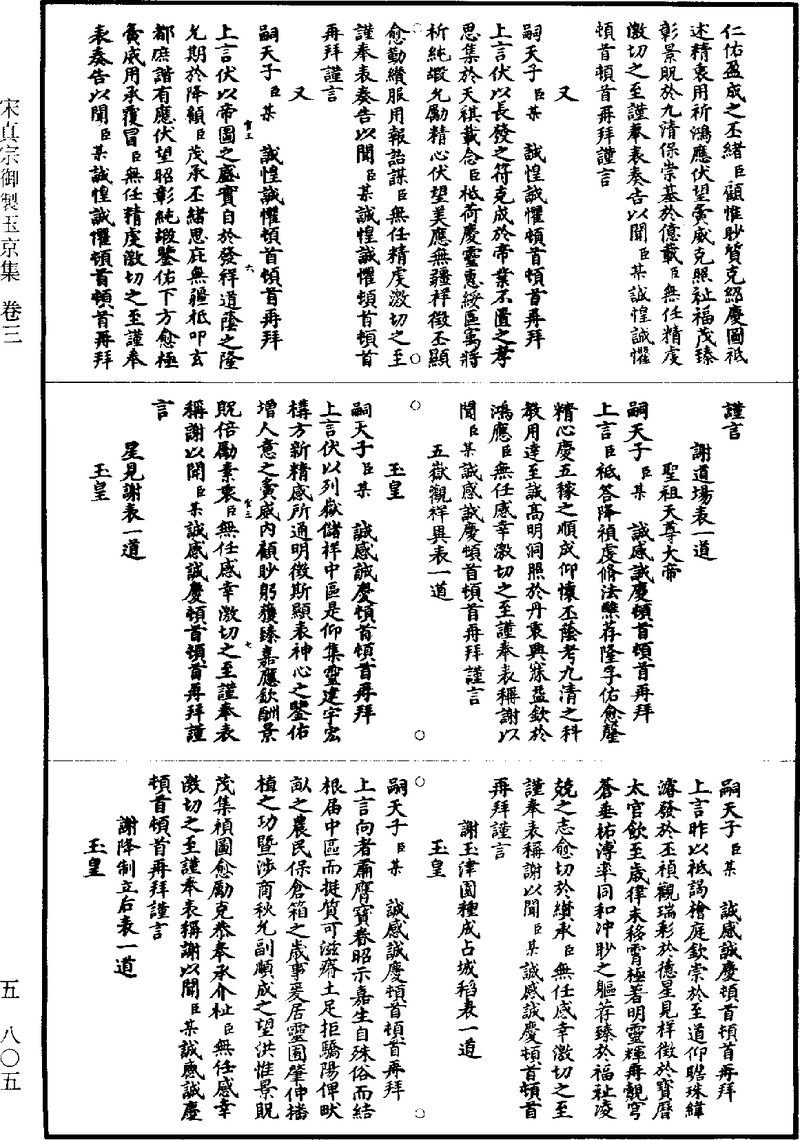 仁佑盈成之丕緒臣顧惟眇質克紹慶圖祇
述精衷用祈鴻應伏望㒹威克照祉福茂臻
彰景貺於九清保崇基於億載臣無任精虔
激切之至謹奉表奏告以聞臣某誠惶誠懼
頓首頓首再拜謹言
又
嗣天子臣某　誠惶誠懼頓首頓首再拜
上言伏以長發之符克成於帝業不匱之孝
思集於天祺載念臣祗荷慶靈惠綏區寓將
祈純嘏允勵精心伏望美應無疆祥徵丕顯
愈勤纘服用報詒謀臣無任精虔激切之至
謹奉表奏告以聞臣某誠惶誠懼頓首頓首
再拜謹言
又
嗣天子臣某　誠惶誠懼頓首頓首再拜
上言伏以帝圖之盛實自於發祥道蔭之隆
允期於降顧臣茂承丕緒思庇無疆祗叩玄
都庶諧有應伏望昭彰純嘏鑒佑下方愈極
夤威用承覆冒臣無任精虔激切之至謹奉
表奏告以聞臣某誠惶誠懼頓首頓首再拜
謹言
謝道場表一道
聖祖天尊大帝
嗣天子臣某　誠感誠慶頓首頓首再拜
上言臣祗答降禎虔脩法樂荐隆孚佑愈罄
精心慶五稼之順成仰懷丕蔭考九清之科
教用達至誠高明洞照於丹衷興寐益欽於
鴻應臣無任感幸激切之至謹奉表稱謝以
聞臣某誠感誠慶頓首頓首再拜謹言
五嶽觀祥異表一道
玉皇
嗣天子臣某　誠感誠慶頓首頓首再拜
上言伏以列嶽儲祥中區是仰集靈建宇宏
構方新精感所通明徵斯顯表神心之鑒佑
增人意之夤威內顧眇躬獲臻嘉應欽酬景
貺倍勵素衷臣無任感幸激切之至謹奉表
稱謝以聞臣某誠感誠慶頓首頓首再拜謹
言
星見謝表一道
玉皇
嗣天子臣某　誠感誠慶頓首頓首再拜
上言昨以祗謁檜庭欽崇於至道仰瞻珠緯
濬發於丕禎觀瑞彩於德星見祥徵於寶曆
太官欽至歲律未移霄極著明靈輝再覿穹
蒼垂祐溥率同和沖眇之軀荐臻於福祉凌
兢之志愈切於纘承臣無任感幸激切之至
謹奉表稱謝以聞臣某誠感誠慶頓首頓首
再拜謹言
謝玉津園種成占城稻表一道
玉皇
嗣天子臣某　誠感誠慶頓首頓首再拜
上言向者肅膺寶眷昭示嘉生自殊俗而結
根届中區而挺質可滋瘠土足拒驕陽俾畎
畝之農民保倉箱之歲事爰居靈囿肇伸播
植之功暨涉商秋允副順成之望洪惟景貺
茂集禎圖愈勵克恭奉承介祉臣無任感幸
激切之至謹奉表稱謝以聞臣某誠感誠慶
頓首頓首再拜謹言
謝降制立后表一道
玉皇
宋真宗御製玉京集　卷三
五　八〇五